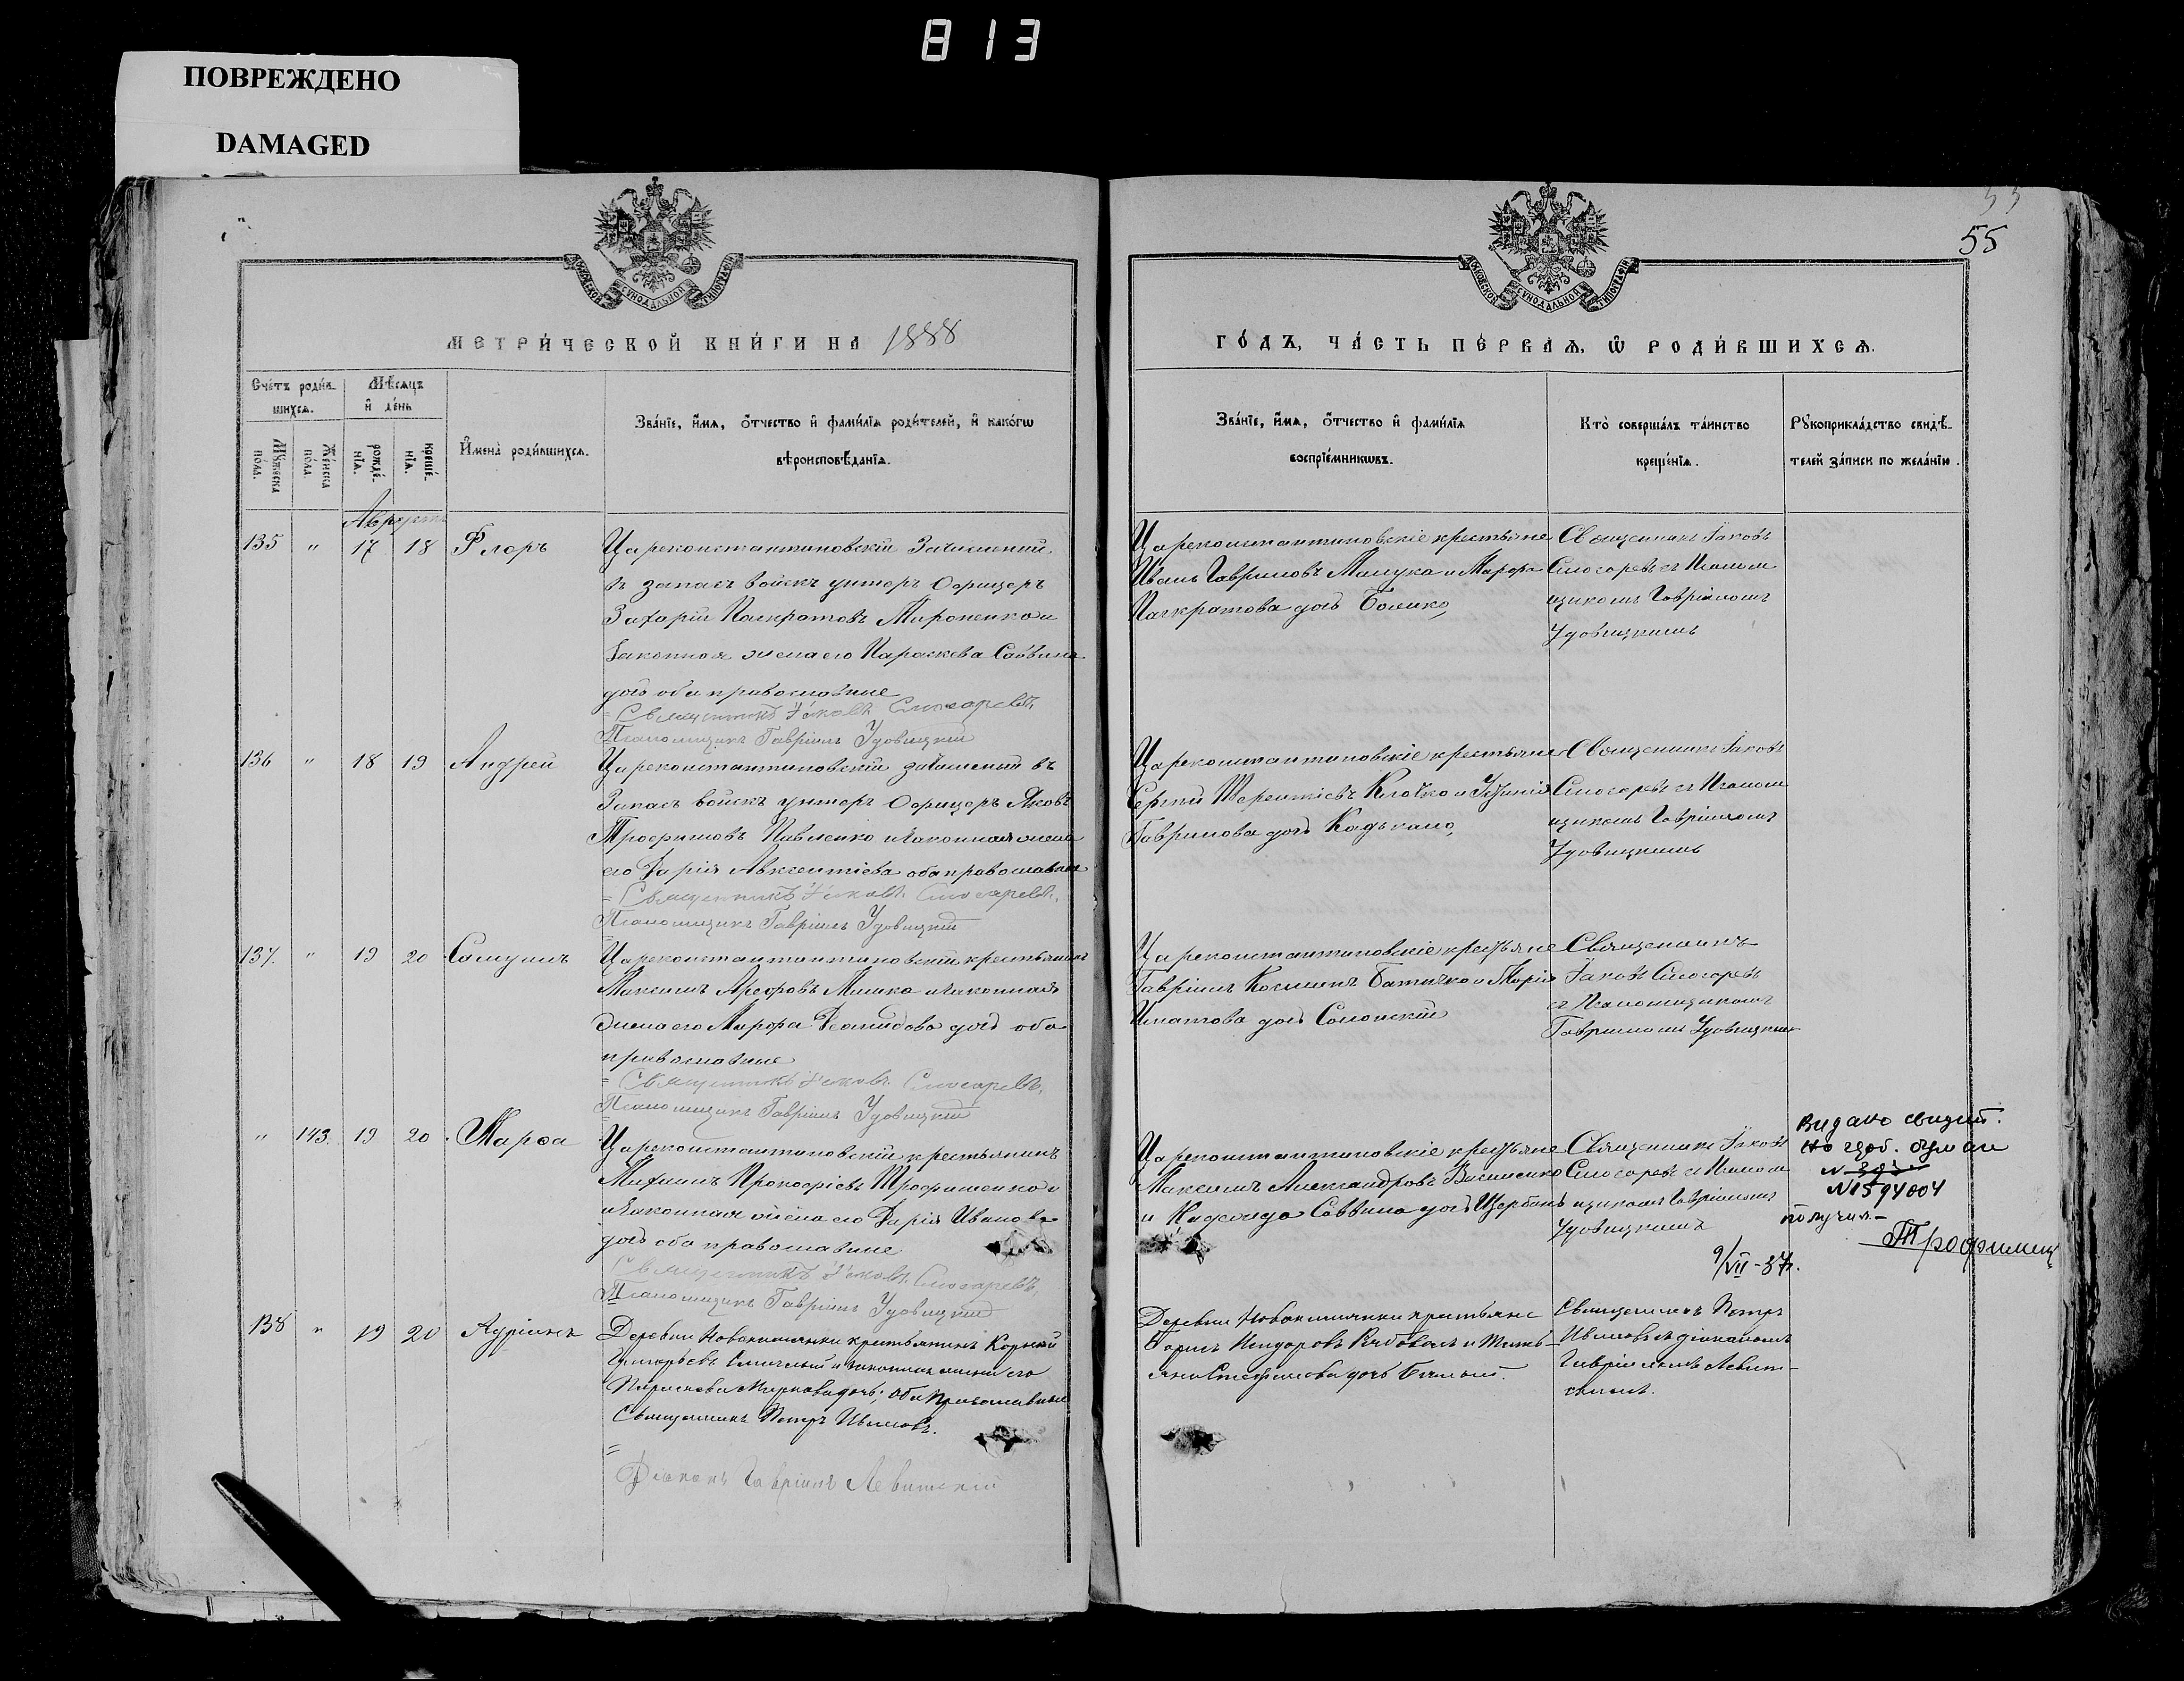 813
ПОВРЕЖДЕНО
DAMAGED
55
МОСКОВСКОЙ СѴНОДАЛЬНОЙ ТИПОГРАФІИ
МОСКОВСКОЙ СѴНОДАЛЬНОЙ ТИПОГРАФІИ
МЕТРИ́ЧЕСКОЙ КНИ́ГИ НА 1888
ГО́ДЪ, ЧА́СТЬ ПЕ́РВАѦ, Ѽ РОДИ́ВШИХСѦ.
Сче́тъ роди́в-
шихсѧ.
Мѣ́сѧцъ
и҆ де́нь
Мꙋ́жеска
по́ла.
Же́нска
по́ла.
рожде́-
нїѧ.
креще́-
нїѧ.
И҆мена̀ роди́вшихсѧ.
Зва́нїе, и҆́мѧ, ѻ҆́тчество и҆ фами́лїѧ роди́телей, и҆ како́гѡ
вѣроисповѣ́данїѧ.
Зва́нїе, и҆́мѧ, ѻ҆́тчество и҆ фами́лїѧ
воспрїе́мникѡвъ.
Кто̀ соверша́лъ та́инство
креще́нїѧ.
Рꙋкоприкла́дство свидѣ́-
телей за́писи по жела́нїю.
Августъ
135 " 17 18 Флоръ
Цареконстантиновскій Зачисленный
въ запасъ войскъ унтеръ Офицеръ
Захарій Панкратовъ Мироненко и
Законная жена его Параскева Саввина
дочь оба православные
Священникъ Іаковъ Слюсаревъ
Псаломщикъ Гавріилъ Удовицкій
Цареконстантиновскіе крестьяне
Иванъ Гавриловъ Мамука и Марфа
Панкратова дочь
Священникъ Іаковъ
Слюсаревъ съ Псалом
щикомъ Гавріиломъ
Удовицкимъ
136 " 18 19 Андрей
Цареконстантиновскій зачисленный въ
Запасъ войскъ унтеръ Офицеръ Яковъ
Трофимовъ Павленко и Законная жена
его Дарія Авксентіева оба православные
Священникъ Іаковъ Слюсаревъ
Псаломщикъ Гавріилъ Удовицкій
Цареконстантиновскіе крестьяне
Сергій Терентіевъ Клочко и
Гаврилова дочь
Священникъ Іаковъ
Слюсаревъ съ Псалом
щикомъ Гавріиломъ
Удовицкимъ
137. " 19 20 Самуилъ
Цареконстантиновскій крестьянинъ
Максимъ Мишко и Законная
жена его Марфа дочь оба
православные
Священникъ Іаковъ Слюсаревъ
Псаломщикъ Гавріилъ Удовицкій
Цареконстантиновскіе крестьяне
Гавріилъ и Марія
Игнатова дочь
Священникъ
Іаковъ Слюсаревъ
съ Псаломщикомъ
Гавріиломъ Удовицкимъ
" 143. 19 20 Марѳа
Цареконстантиновскій крестьянинъ
Михаилъ Прокофіевъ Трофименко
и Законная жена его Дарія Иванова
дочь оба православные
Священникъ Іаковъ Слюсаревъ
Псаломщикъ Гавріилъ Удовицкій
Цареконстантиновскіе крестьяне
Максимъ Александровъ Василенко
и Надежда Саввина дочь Щербань
Священникъ Іаковъ
Слюсаревъ съ Псалом
щикомъ Гавріиломъ
Удовицкимъ
Видано свидет.
N 1594004
получил.
Трофимец
9/VII-37г.
138 " 19 20 Адріанъ
Деревни крестьянинъ Корній
Григорьевъ и законная жена его
Параскева Маркова дочь; оба Православные
Священникъ Петръ Ивановъ.
Діаконъ Гавріилъ Левитскій
Деревни крестьяне
Борисъ и Татья-
на Стефанова дочь
Священникъ Петръ
Ивановъ съ діакономъ
Гавріиломъ Левит-
скимъ.